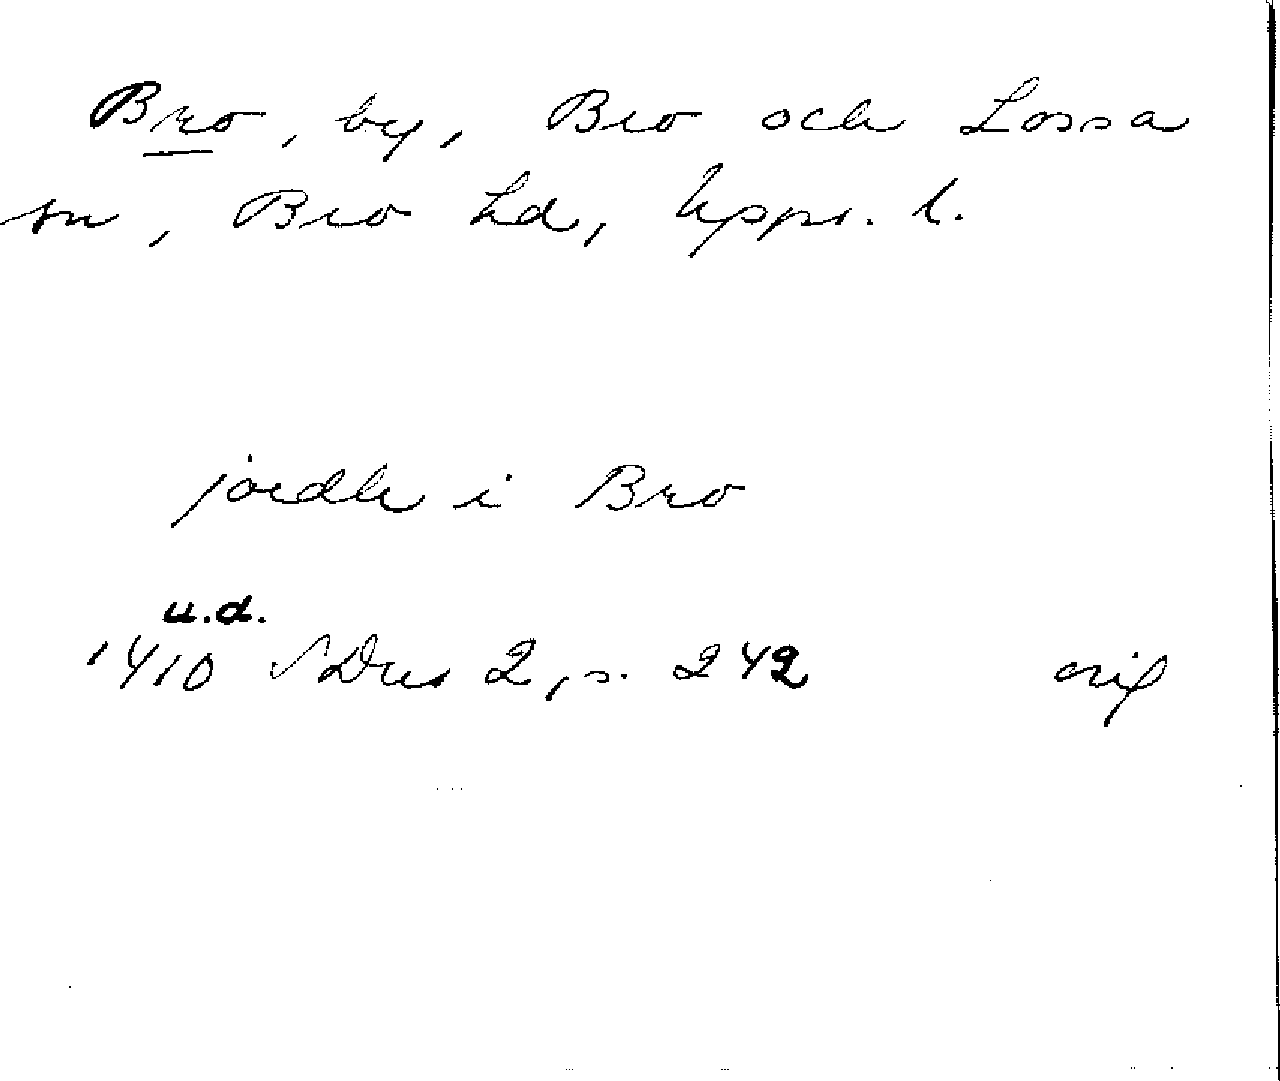 Bro, by, Bro och Lossa
sn, Bro hd, Upps. l.
jordle i Bro
u.d.
1410 SDns 2, s. 242 orig